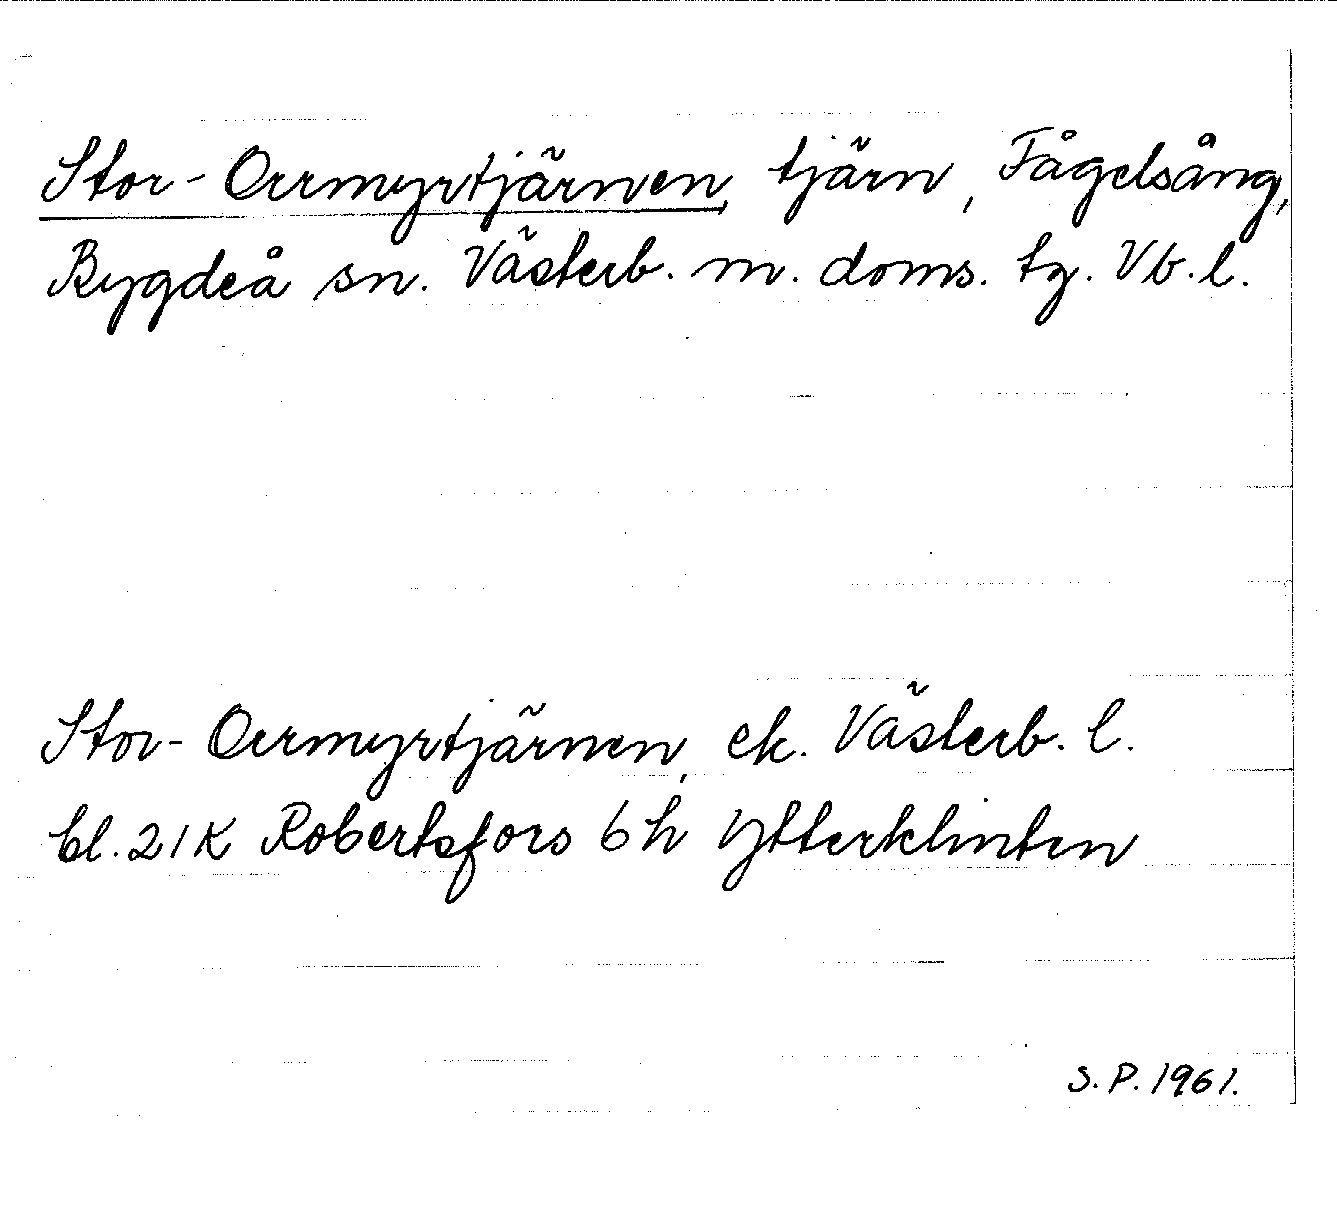 Stor-Orrmyrtjärnen, tjärn, Fågelsång,
Bygdeå sn. Västerb. m. doms. tg. Vb. l.
Stor-Orrmyrtjärnen, ek. Västerb. l.
bl. 21K Robertsfors 6h Ytterklinten
S. P. 1961.